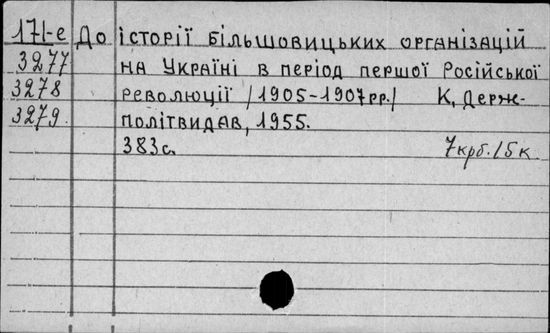 171-е До історії більшовицьких організацій
3277 на Україні в період першої Російської
3278 революції /1905-1907рр./ К, Держ-
3279. політвидав, 1955.
383с. 7крб.15к